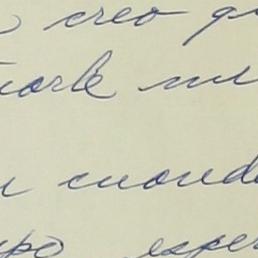 creo qu
iarle mi
cuando
po esper